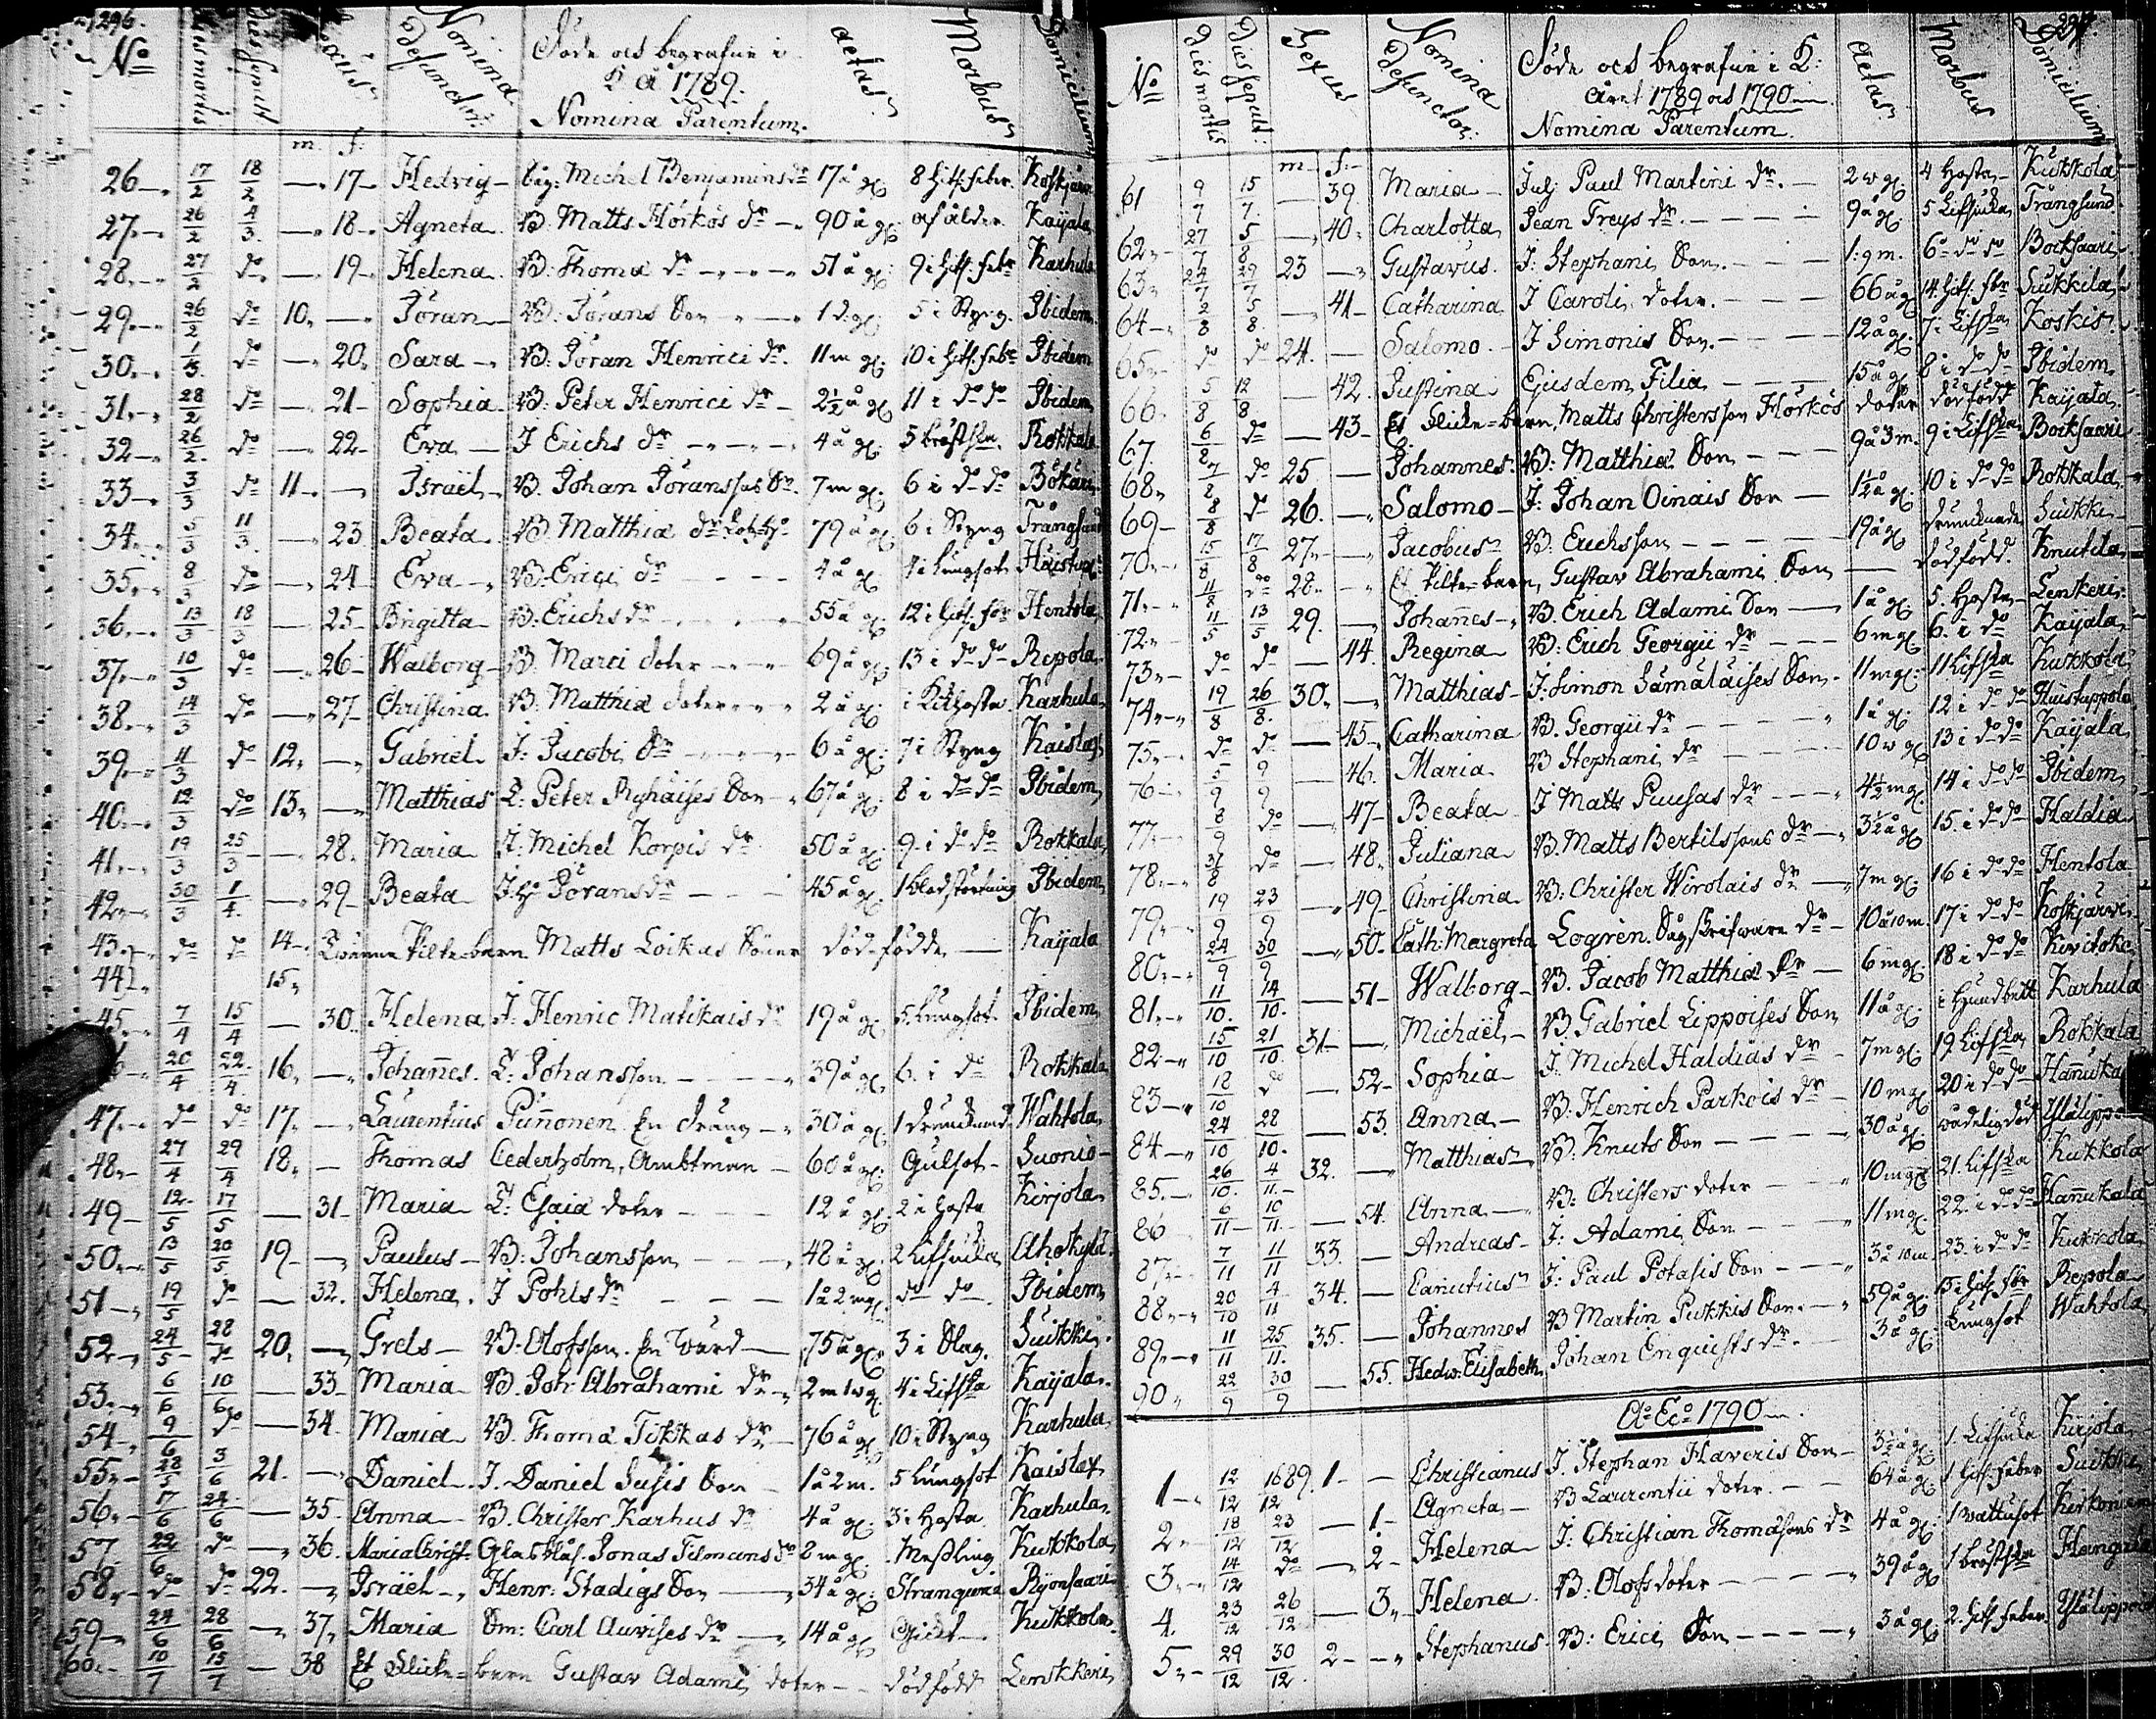 296.
No Dies mortis Dies sepult Sexus Nomina defunctor: Döde och begrafne i K a 1789. Nomina Parentum. aetas Morbus Domicilium
m. f:
26 17/2 18/2 — 17 Hedvig Michel Benjamins dr 17 å gl: 8 hits: feber. Koskjärvi
27 26/2 4/3 — 18 Agneta B. Matts Hörkös dr 90 å gl: af ålder Kaijala
28 27/2 do — 19 Helena B: Thomæ dr 51 å gl: 9 i hits: febr Karhula
29 26/2 do 10 — Jöran B: Jörans Son 1 d. gl: 5 i Styng. Ibidem
30 1/3 do — 20 Sara B: Jöran Henrici dr. 11 m gl: 10 i hits: febr Ibidem
31 28/2 do — 21 Sophia B: Peter Henrici dr 2½ å gl 11 i do do Ibidem
32 26/2 do — 22 Eva J Erichs dr 4 å gl: 5 bröstsju. Rokkala
33 3/3 do 11 — Israël B. Johan Göranssos Sn 7 m gl: 6 i do do
34 5/3 11/3 — 23 Beata B. Matthiæ dr 79 å gl: 6 i Styng Trångsund
35 8/3 do — 24 Eva B: Erici dr 4 å gl 4 i Lungsot
36 13/3 18/3 — 25 Brigitta B: Erichs dr 55 å gl: 12 i hits: feber Hentola
37 10/3 do — 26 Walborg B. Marci doter 69 å gl: 13 i do do Repola
38 14/3 do — 27 Christina B: Matthiæ doter 2 å gl: i Kikhosta Karhula
39 11/3 do 12 — Gabriel J: Jacobi Sn 6 å gl: 7 i Styng Kaislax
40 12/3 do 13 — Matthias L: Peter Ryhäises Son 67 å gl: 8 i do do Ibidem
41 19/3 25/3 — 28 Maria J: Michel Korpis dr 50 å gl: 9 i do do Rokkala
42 30/3 1/4 — 29 Beata Jörans dr 45 å gl: 1 Blodstörtning Ibidem
43 do do 14 Tvänne Pilte-barn Matts Loikas Söner död-födde — Kaijala
44 15
45 7/4 15/4 — 30 Helena J: Henric Matikais dr 19 å gl: 5 Lungsot Ibidem
20/4 22/4 16 — Johannes L: Johansson 39 å gl: 6 i do Rokkala
47 do do 17 — Laurentius Punnonen En dräng 30 å gl: 1 Drunknad Wahtola
48 27/4 29/4 18 — Thomas Cederholm, Ambtman 60 å gl: Gulsot Suonio
49 12/5 17/5 — 31 Maria L: Esaiæ doter 12 å gl: 2 i hosta Kirjola
50 13/5 20/5 19 — Paulus B: Johansson 48 å gl: 2 Lifsiuka Ahokylä
51 19/5 do — 32 Helena J Pohls dr 1 å 2 m gl: do do Ibidem
52 24/5 28/do 20 — Grels B: Olofsson. En 75 å gl: 3 i Slag Suikki
53 6/6 10/6 — 33 Maria B. Joh: Abrahami dr 2 m 1 w gl: 4 i Lifsia Kaijala
54 9/6 do — 34 Maria B. Thomæ Tikkas dr 76 å gl 10 i Styng Karhula
55 28/5 3/6 21 — Daniel J. Daniel Susis Son 1 å 2 m. 5 Lungsot Kaislax
56 17/6 24/6 — 35 Anna B. Christer Karhus dr 4 å gl: 3 i hosta Karhula
57 22/6 do — 36 Maria Christ: Jonas Tilmans dr 2 m gl: Meßling Kukkola
58 do do 22 — Israël Henr: Stadigs Son 34 å gl: Stranguria Ryönsaari
59 24/6 28/6 — 37 Maria Carl Auvises dr 14 å gl Gickt Kukkola
60 10/7 15/7 — 38 Et Flicke-barn Gustav Adami doter dödfödd Lenskkeri
No dies mortis dies sepult: Sexus Nomina defunctor: Döde och begrafne i K: året 1789 och 1790. Nomina Parentum. Aetas Morbus Domicilium
m. f:
61 9/7 15/7 — 39 Maria Paul Martini dr. 2 w gl: 4 Hosta Kukkola
62 27/7 5/8 — 40 Charlotta Jean Freys dr. 9 å gl: 5 Lifsiuka Trångsund
63 24/7 29/7 23 — Gustavus. J: Stephani Son. 1: 9 m. 6 do do Borksaari
64 2/8 5/8 — 41 Catharina J Caroli doter. 66 å gl 14 hits: fbr Suikkila
65 do do 24. — Salomo J Simonis Son. 12 å gl: 7 i Lifsia Koskis
66 5/8 12/8 — 42. Justina Ejusdem Filia 15 å gl: 8 i do do Ibidem
67 6/8 do — 43 Et Flicke-barn, Matts Christersson Hörkös doter dödfödd Kaijala
68 7/8 do 25 — Johannes B: Matthiæ Son 9 å 3 m. 9 i Lifsia Borksaari
69 8/8 do 26. — Salomo J: Johan Oinais Son 1½ å gl: 10 i do do Rokkala
70 15/8 17/8 27 — Jacobus B: Erichsson 19 å gl drunknade Suikki
71 11/8 do 28 Et Pilte-barn, Gustav Abrahami Son — dödfödd. Knutila
72 11/5 13/5 29. — Johannes B. Erich Adami Son 1 å gl: 5. Hosta Lenkeri
73 do do — 44. Regina B: Erich Georgii dr 6 m gl: 6. i do Kaijala
74 19/8 26/8. 30 — Matthias J: Simon Sämäläises Son 11 m gl: 11 Lifsia Kukkola
75 do do — 45 Catharina B. Georgii dr 1 å gl: 12 i do do
76 5/9 9/9 — 46. Maria B Stephani dr 10 w gl 13 i do do Kaijala
77 8/9 do — 47 Beata J Matts Puusas dr 4½ m gl: 14 i do do Ibidem
78 31/8 do — 48 Juliana B. Matts Bertilssons dr 3½ å gl 15. i do do Haldia
79 19/9 23/9 — 49 Christina B: Christer Wirolais dr 7 m gl: 16 i do do Hentola
80 24/9 30/9 — 50 Cath: Margreta Logren. dr 10 å 10 m 17 i do do Koskjärvi
81 11/10. 14/10. — 51 Walborg B. Jacob Matthiæ dr 6 m gl: 18 i do do
82 15/10 21/10 31 — Michaël B. Gabriel Lippoises Son 11 å gl: i Karhula
83 18/10 do — 52 Sophia J. Michel Haldias dr 7 m gl: 19 Lifsia Rokkala
84 24/10 28/10. — 53 Anna B: Henrich Parkois dr 10 m gl 20 i do do Hannukala
85 26/10. 4/11. 32. — Matthias B. Knuts Son 30 å gl: wådelig död
86 6/11 10/11 — 54. Anna B: Christers doter 10 m gl 21. Lifsia Kukkola
87 7/11 11/11 33. — Andreas J: Adami Son 11 m gl: 22 i do do Hannukala
88 20/10 4/11 34. — Canutius J: Paul Potasis Son 3 å 10 m 23. i do do Kukkola
89 11/11 25/11. 35. — Johannes B Martin Pukkis Son. 59 å gl: 15 i hits: fbr Repola
90 22/9 30/9 — 55. Hedw: Elisabeth Johan Enquists dr. 3 å gl: Lungsot Wahtola
Ao Eo 1790
1 12/12 1689/12 1 — Christianus J. Stephan Haveris Son 3½ å gl: 1. Lifsiuka Kirjola
2 18/12 23/12 — 1 Agneta B Laurentii doter. 64 å gl: 1 hits: feber Suikki
3 14/12 do — 2 Helena J: Christian Thomæsons dr 4 å gl: 1 Wattusot
4 23/12 26/12 — 3 Helena B. Olofs doter 39 å gl 1 bröstsiu
5 29/12 30/12 2 — Stephanus B: Erici Son 3 å gl: 2. hits: feber